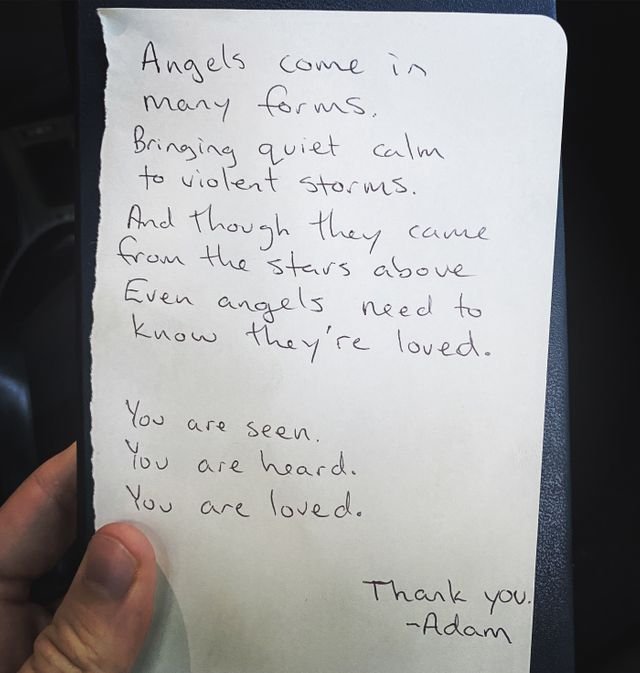 Angels come in
many forms.
Bringing quiet calm
to violent storms.
And though they came
from the stars above
Even angels need to
know they're loved.
You are seen.
You are heard.
You are loved.
Thank you.
-Adam